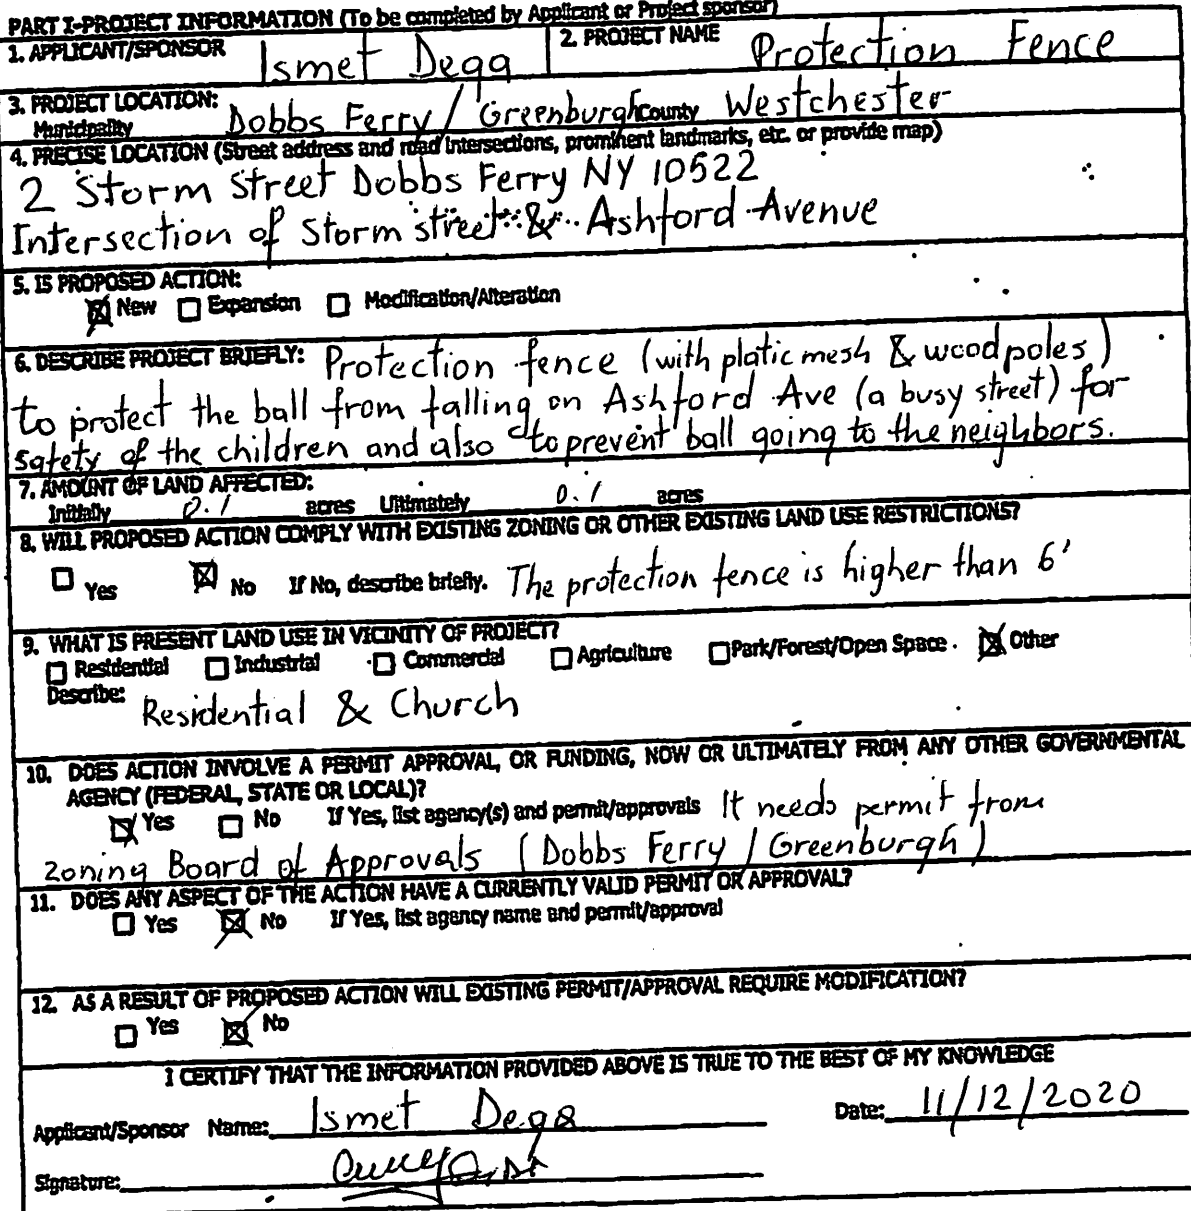 PART I-PROJECT INFORMATION (To be completed by Applicant or Project sponsor)
1. APPLICANT/SPONSOR Ismet Dega 2. PROJECT NAME Protection Fence
3. PROJECT LOCATION:
Municipality Dobbs Ferry / Greenburgh County Westchester
4. PRECISE LOCATION (Street address and road intersections, prominent landmarks, etc. or provide map)
2 Storm Street Dobbs Ferry NY 10522
Intersection of Storm street & Ashford Avenue
5. IS PROPOSED ACTION:
☒ New ☐ Expansion ☐ Modification/Alteration
6. DESCRIBE PROJECT BRIEFLY: Protection fence (with platic mesh & wood poles)
to protect the ball from falling on Ashford Ave (a busy street) for
safety of the children and also to prevent ball going to the neighbors.
7. AMOUNT OF LAND AFFECTED:
Initially 0.1 acres Ultimately 0.1 acres
8. WILL PROPOSED ACTION COMPLY WITH EXISTING ZONING OR OTHER EXISTING LAND USE RESTRICTIONS?
☐ Yes ☒ No If No, describe briefly. The protection fence is higher than 6'
9. WHAT IS PRESENT LAND USE IN VICINITY OF PROJECT?
☐ Residential ☐ Industrial ☐ Commercial ☐ Agriculture ☐ Park/Forest/Open Space ☒ Other
Describe: Residential & Church
10. DOES ACTION INVOLVE A PERMIT APPROVAL, OR FUNDING, NOW OR ULTIMATELY FROM ANY OTHER GOVERNMENTAL
AGENCY (FEDERAL, STATE OR LOCAL)?
☒ Yes ☐ No If Yes, list agency(s) and permit/approvals It needs permit from
zoning Board of Approvals (Dobbs Ferry / Greenburgh)
11. DOES ANY ASPECT OF THE ACTION HAVE A CURRENTLY VALID PERMIT OR APPROVAL?
☐ Yes ☒ No If Yes, list agency name and permit/approval
12. AS A RESULT OF PROPOSED ACTION WILL EXISTING PERMIT/APPROVAL REQUIRE MODIFICATION?
☐ Yes ☒ No
I CERTIFY THAT THE INFORMATION PROVIDED ABOVE IS TRUE TO THE BEST OF MY KNOWLEDGE
Applicant/Sponsor Name: Ismet Dega Date: 11/12/2020
Signature: